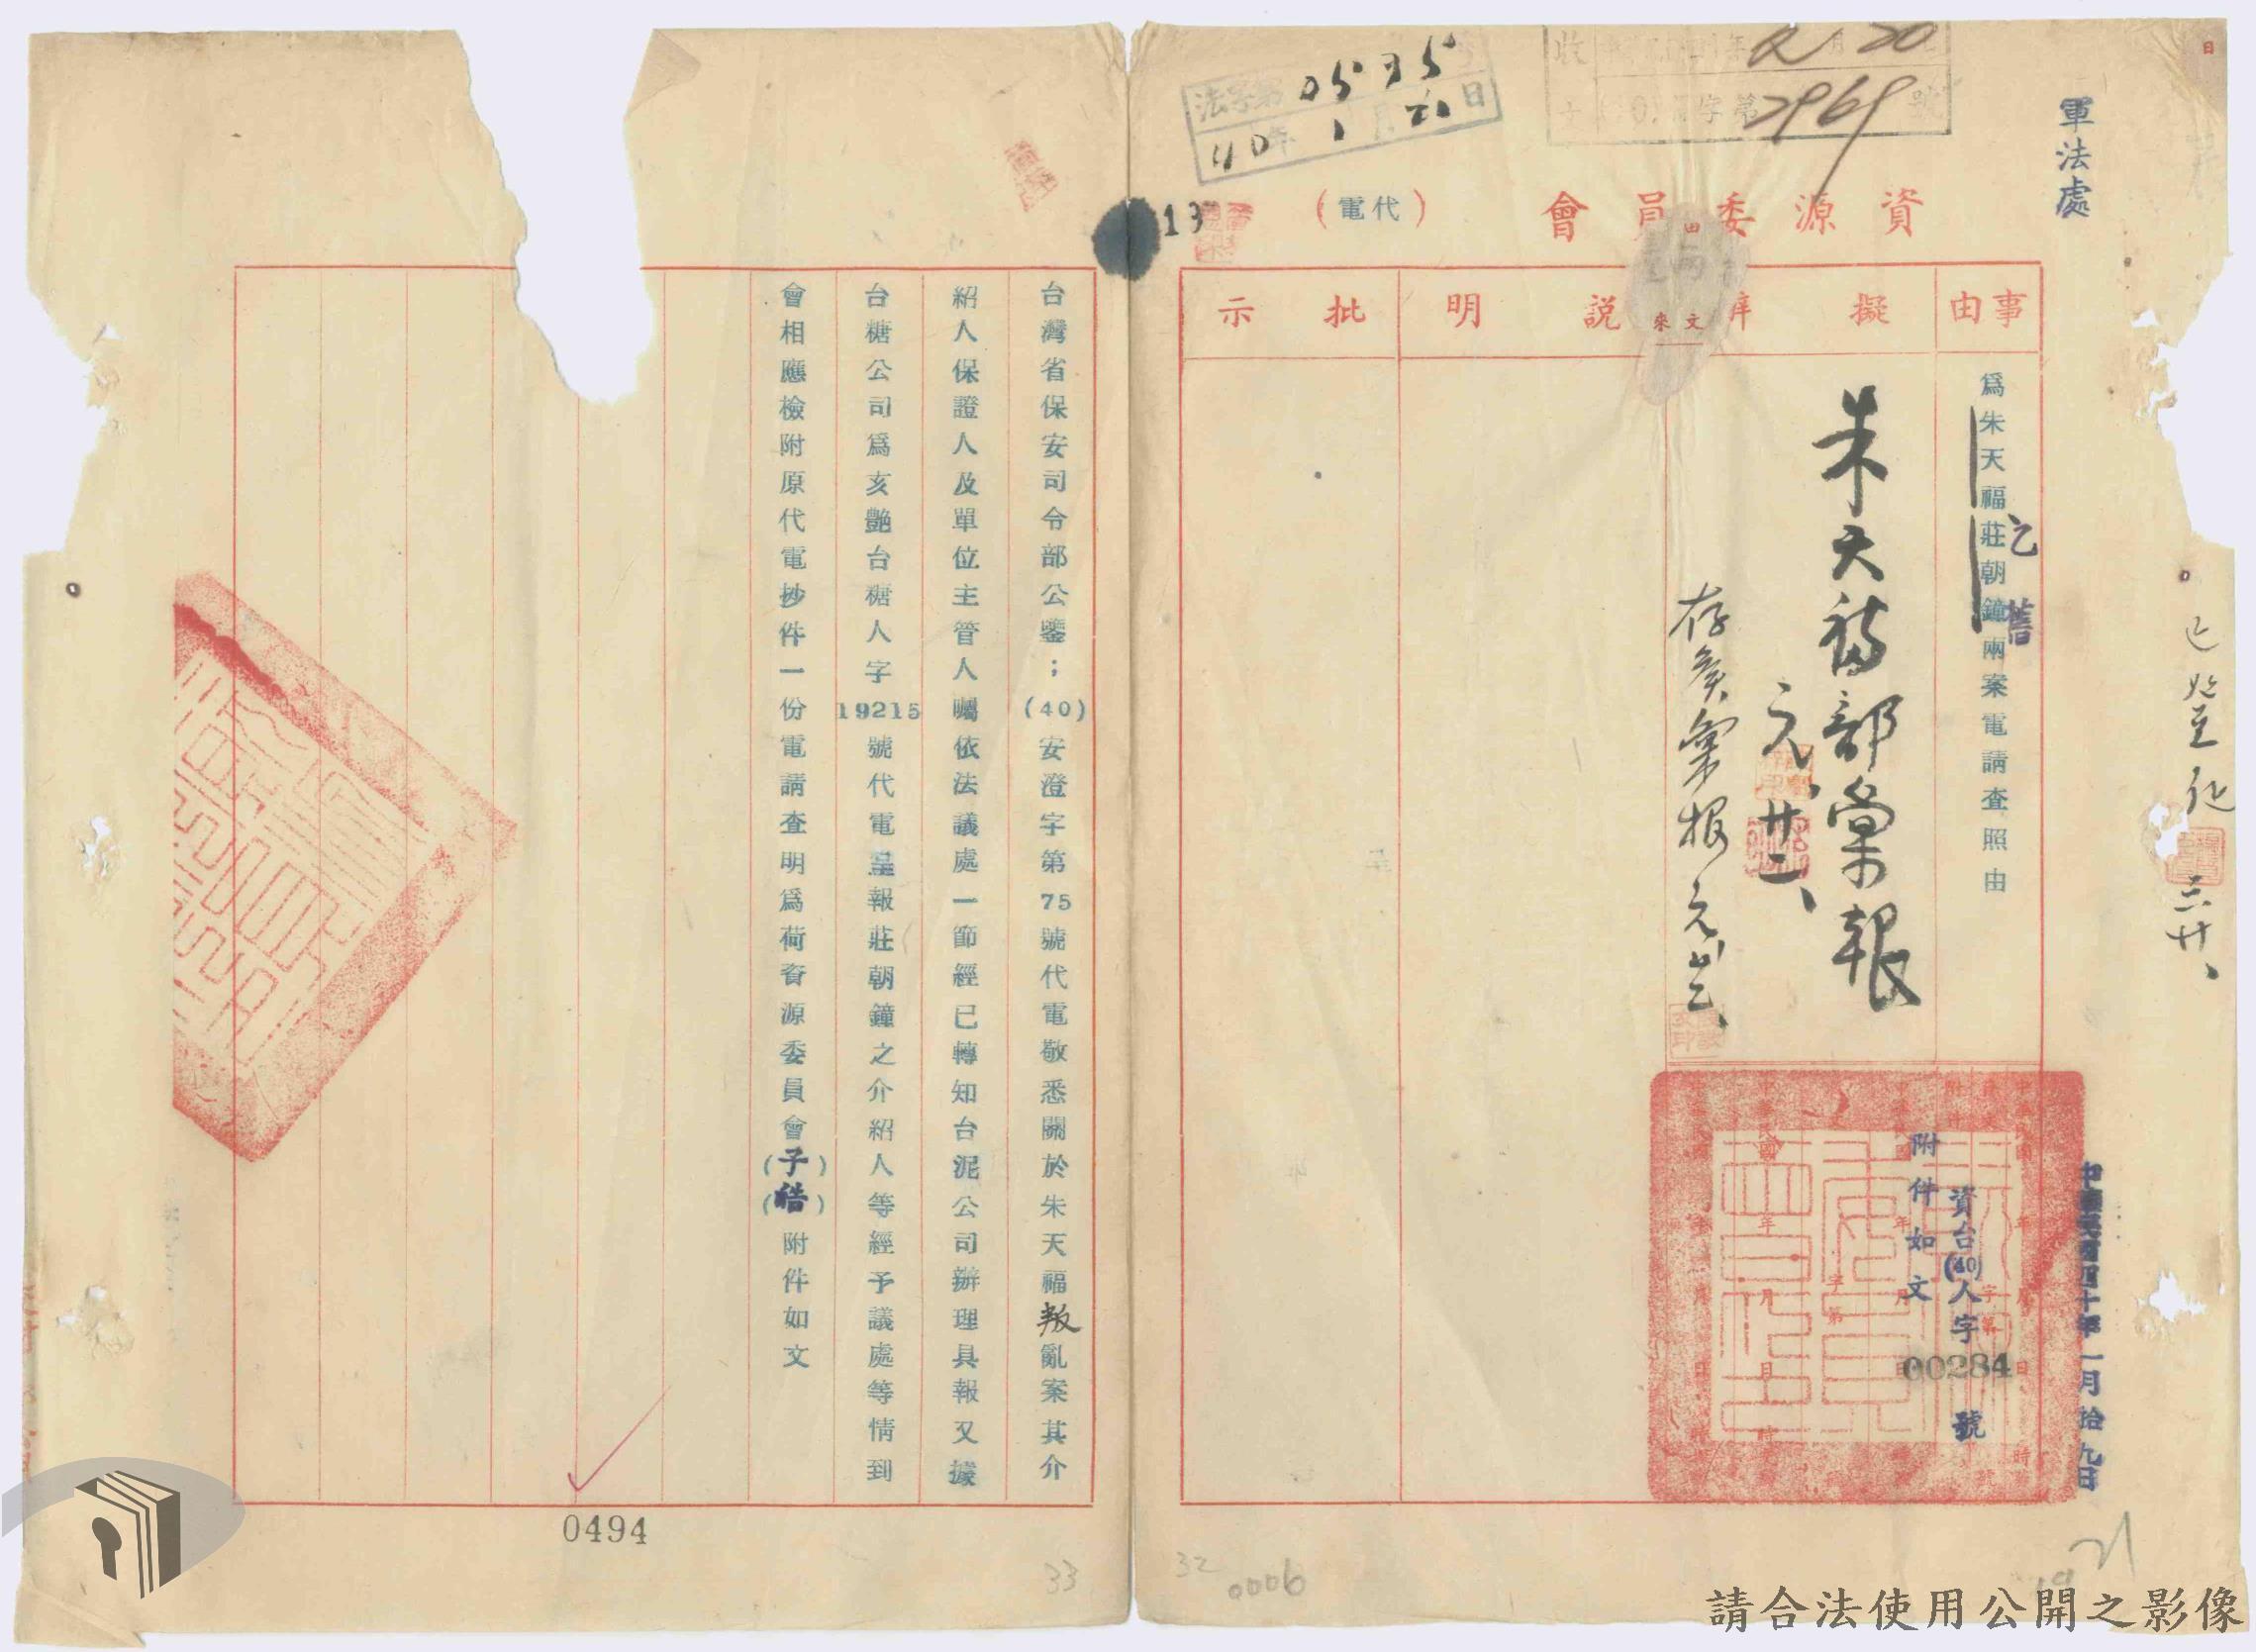 軍法處
資源委員會
(代電)
法字第0535
40年1月21日
2969
19
事由
擬辦
說明
批示
來文
為朱天福莊朝鐘兩案電請查照由
朱天福部彙報
元、廿二、
存案彙報
中華民國四十年一月拾九日
資台(40)人字00284號
附件如文
台灣省保安司令部公鑒；(40)安澄字第75號代電敬悉關於朱天福叛亂案其介
紹人保證人及單位主管人囑依法議處一節經已轉知台泥公司辦理具報又據
台糖公司為亥艷台糖人字19215號代電呈報莊朝鐘之介紹人等經予議處等情到
會相應檢附原代電抄件一份電請查明為荷資源委員會(子)(皓)附件如文
0494
33
32
0006
21
19
請合法使用公開之影像